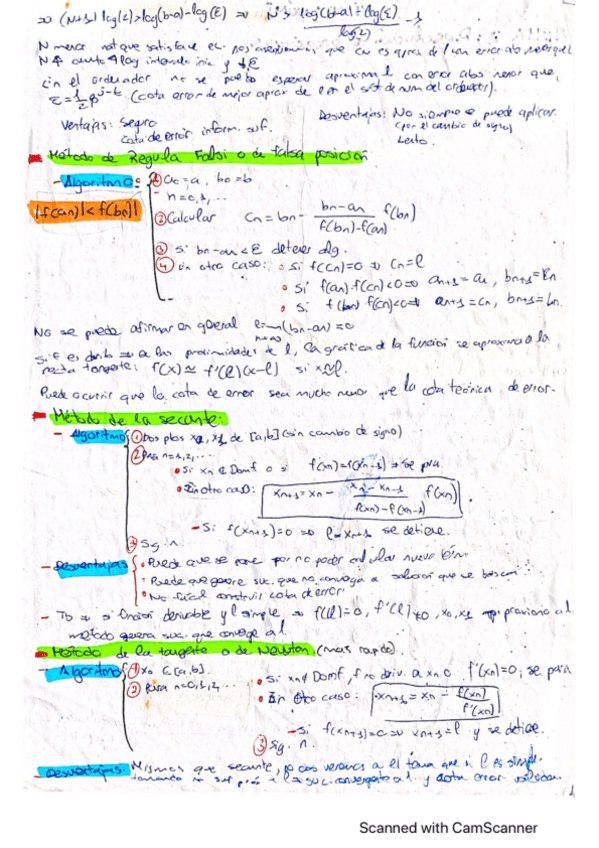 ⇒ (N+1) log(2) > log(b-a) - log(ε) ⇒ N > (log(b-a) - log(ε)) / log(2) - 1
N menor nat que satisface es
N↑ cuanto + long intervalo inic y ↓ε
En el ordenador no se puede esperar aproximar l con error abs menor que
(cota error de mejor aprox de l en el sist de num del ordenador).
Ventajas: Seguro
Cota de error, inform. suf.
Desventajas: No siempre se puede aplicar
(por el cambio de signo)
Lento.
Método de Regula Falsi o de falsa posición
- Algoritmo: ① a₀=a, b₀=b
- n=0,1,...
|f(an)|<f(bn)|
② Calcular cn = bn - (bn-an) / (f(bn)-f(an)) f(bn)
③ Si bn-an<ε detener alg.
④ En otro caso: • Si f(cn)=0 ⇒ cn=l
• Si f(an)·f(cn)<0 ⇒ an+1=an, bn+1=cn
• Si f(bn) f(cn)<0 ⇒ an+1=cn, bn+1=bn.
No se puede afirmar en general lim(bn-an)=0
n→∞
Si f es deriv ⇒ a las proximidades de l, la gráfica de la función se aproxima a la
recta tangente: f(x) ≃ f'(l)(x-l) si x≃l.
Puede ocurrir que la cota de error sea mucho menor que la cota teórica de error.
Método de la secante:
- Algoritmo ① Dos ptos x0, x1 de [a,b] (sin cambio de signo)
② Para n=1,2,...
• Si xn ∉ Domf o si f(xn)=f(xn-1) ⇒ se para
• En otro caso: xn+1 = xn - (xn-xn-1) / (f(xn)-f(xn-1)) f(xn)
- Si f(xn+1)=0 ⇒ l=xn+1 se detiene.
③ Sig. n.
- Desventajas • Puede que se pare por no poder calcular nuevo térm.
• Puede que genere suc. que no converja a solución que se busca
• No fácil construir cota de error
- Tª ⇒ si función derivable y l simple ⇒ f(l)=0, f'(l)≠0, x0,x1 próximo al
método genera suc. que converge a l.
Método de la tangente o de Newton (más rápido).
- Algoritmo ① x0 ∈ [a,b].
② Para n=0,1,2,...
• Si xn ∉ Domf, f no deriv. a xn o f'(xn)=0, se para
• En otro caso: xn+1 = xn - f(xn) / f'(xn)
- Si f(xn+1)=0 ⇒ xn+1=l y se detiene.
③ Sig. n.
- Desventajas Mismas que secante, que si l es simple.
tomando x0 suf próx a l ⇒ suc. convergente a l y
Scanned with CamScanner